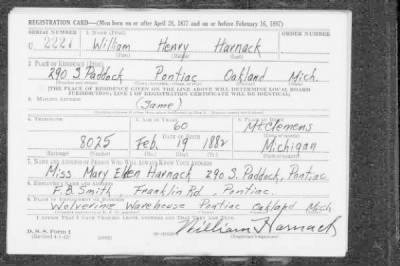 REGISTRATION CARD—(Men born on or after April 28, 1877 and on or before February 16, 1897)
SERIAL NUMBER 1. NAME (Print)
U 2221 William Henry Harnack
(First) (Middle) (Last)
2. PLACE OF RESIDENCE (Print)
290 S. Paddock Pontiac Oakland Mich.
[THE PLACE OF RESIDENCE GIVEN ON THE LINE ABOVE WILL DETERMINE LOCAL BOARD
JURISDICTION; LINE 2 OF REGISTRATION CERTIFICATE WILL BE IDENTICAL]
3. MAILING ADDRESS
(Same)
4. TELEPHONE 5. AGE IN YEARS 6. PLACE OF BIRTH
60 Mt. Clemens
DATE OF BIRTH
8025 Feb. 19 1882 Michigan
7. NAME AND ADDRESS OF PERSON WHO WILL ALWAYS KNOW YOUR ADDRESS
Miss Mary Ellen Harnack 290 S. Paddock, Pontiac
8. EMPLOYER'S NAME AND ADDRESS
F.B. Smith Franklin Rd, Pontiac.
9. PLACE OF EMPLOYMENT OR BUSINESS
Wolverine Warehouse Pontiac Oakland Mich
I AFFIRM THAT I HAVE VERIFIED ABOVE ANSWERS AND THAT THEY ARE TRUE.
D. S. S. Form 1
(Revised 4-1-42)
William Harnack